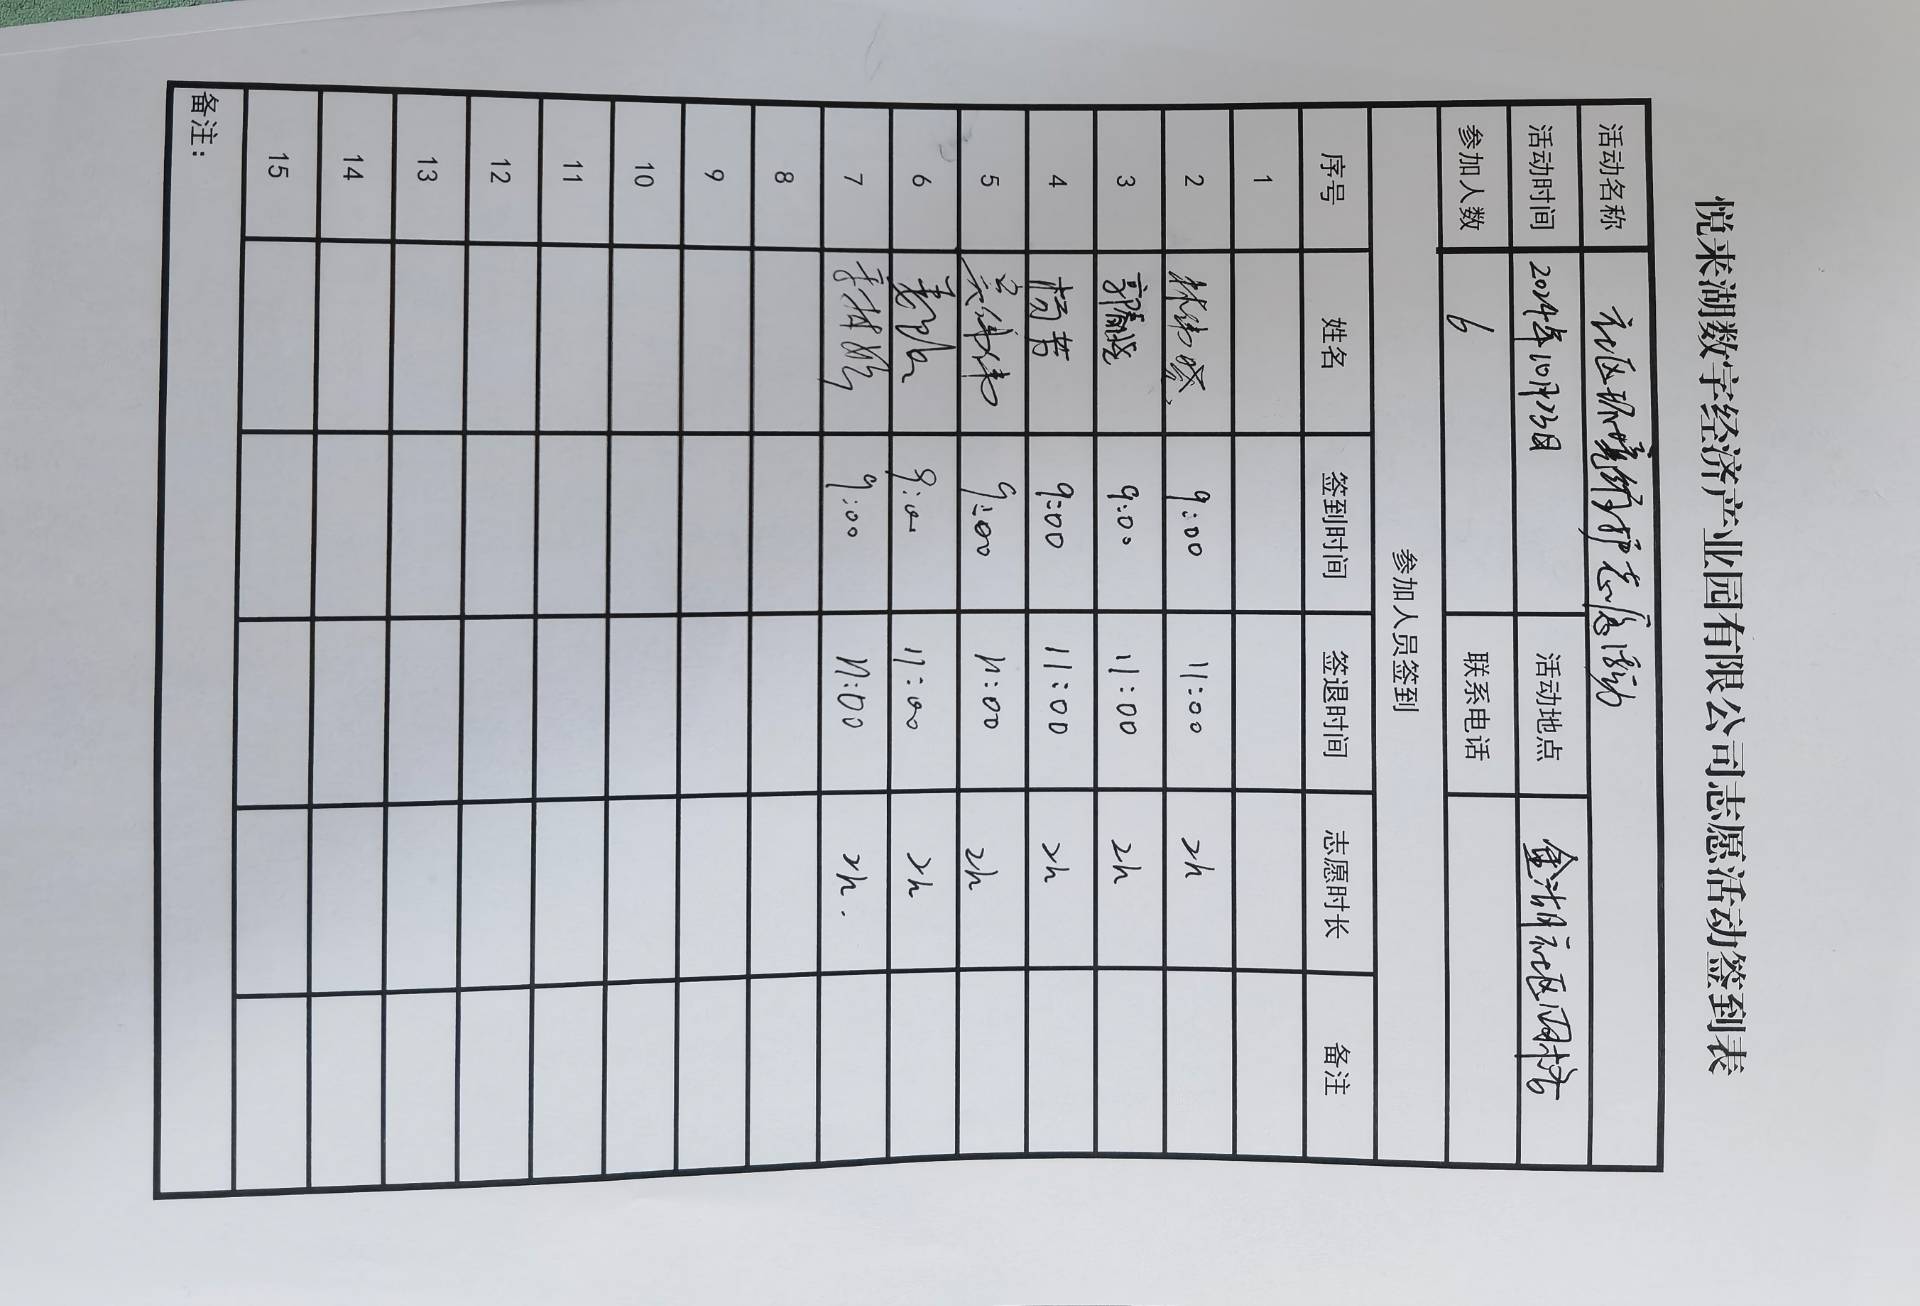 悦来湖数字经济产业园有限公司志愿活动签到表
活动名称 社区环境维护志愿活动
活动时间 2024年10月23日 活动地点 金湖社区
参加人数 6 联系电话
参加人员签到
序号 姓名 签到时间 签退时间 志愿时长 备注
1
2 9:00 11:00 2h
3 9:00 11:00 2h
4 杨苦 9:00 11:00 2h
5 9:00 11:00 2h
6 9:00 11:00 2h
7 9:00 11:00 2h.
8
9
10
11
12
13
14
15
备注：